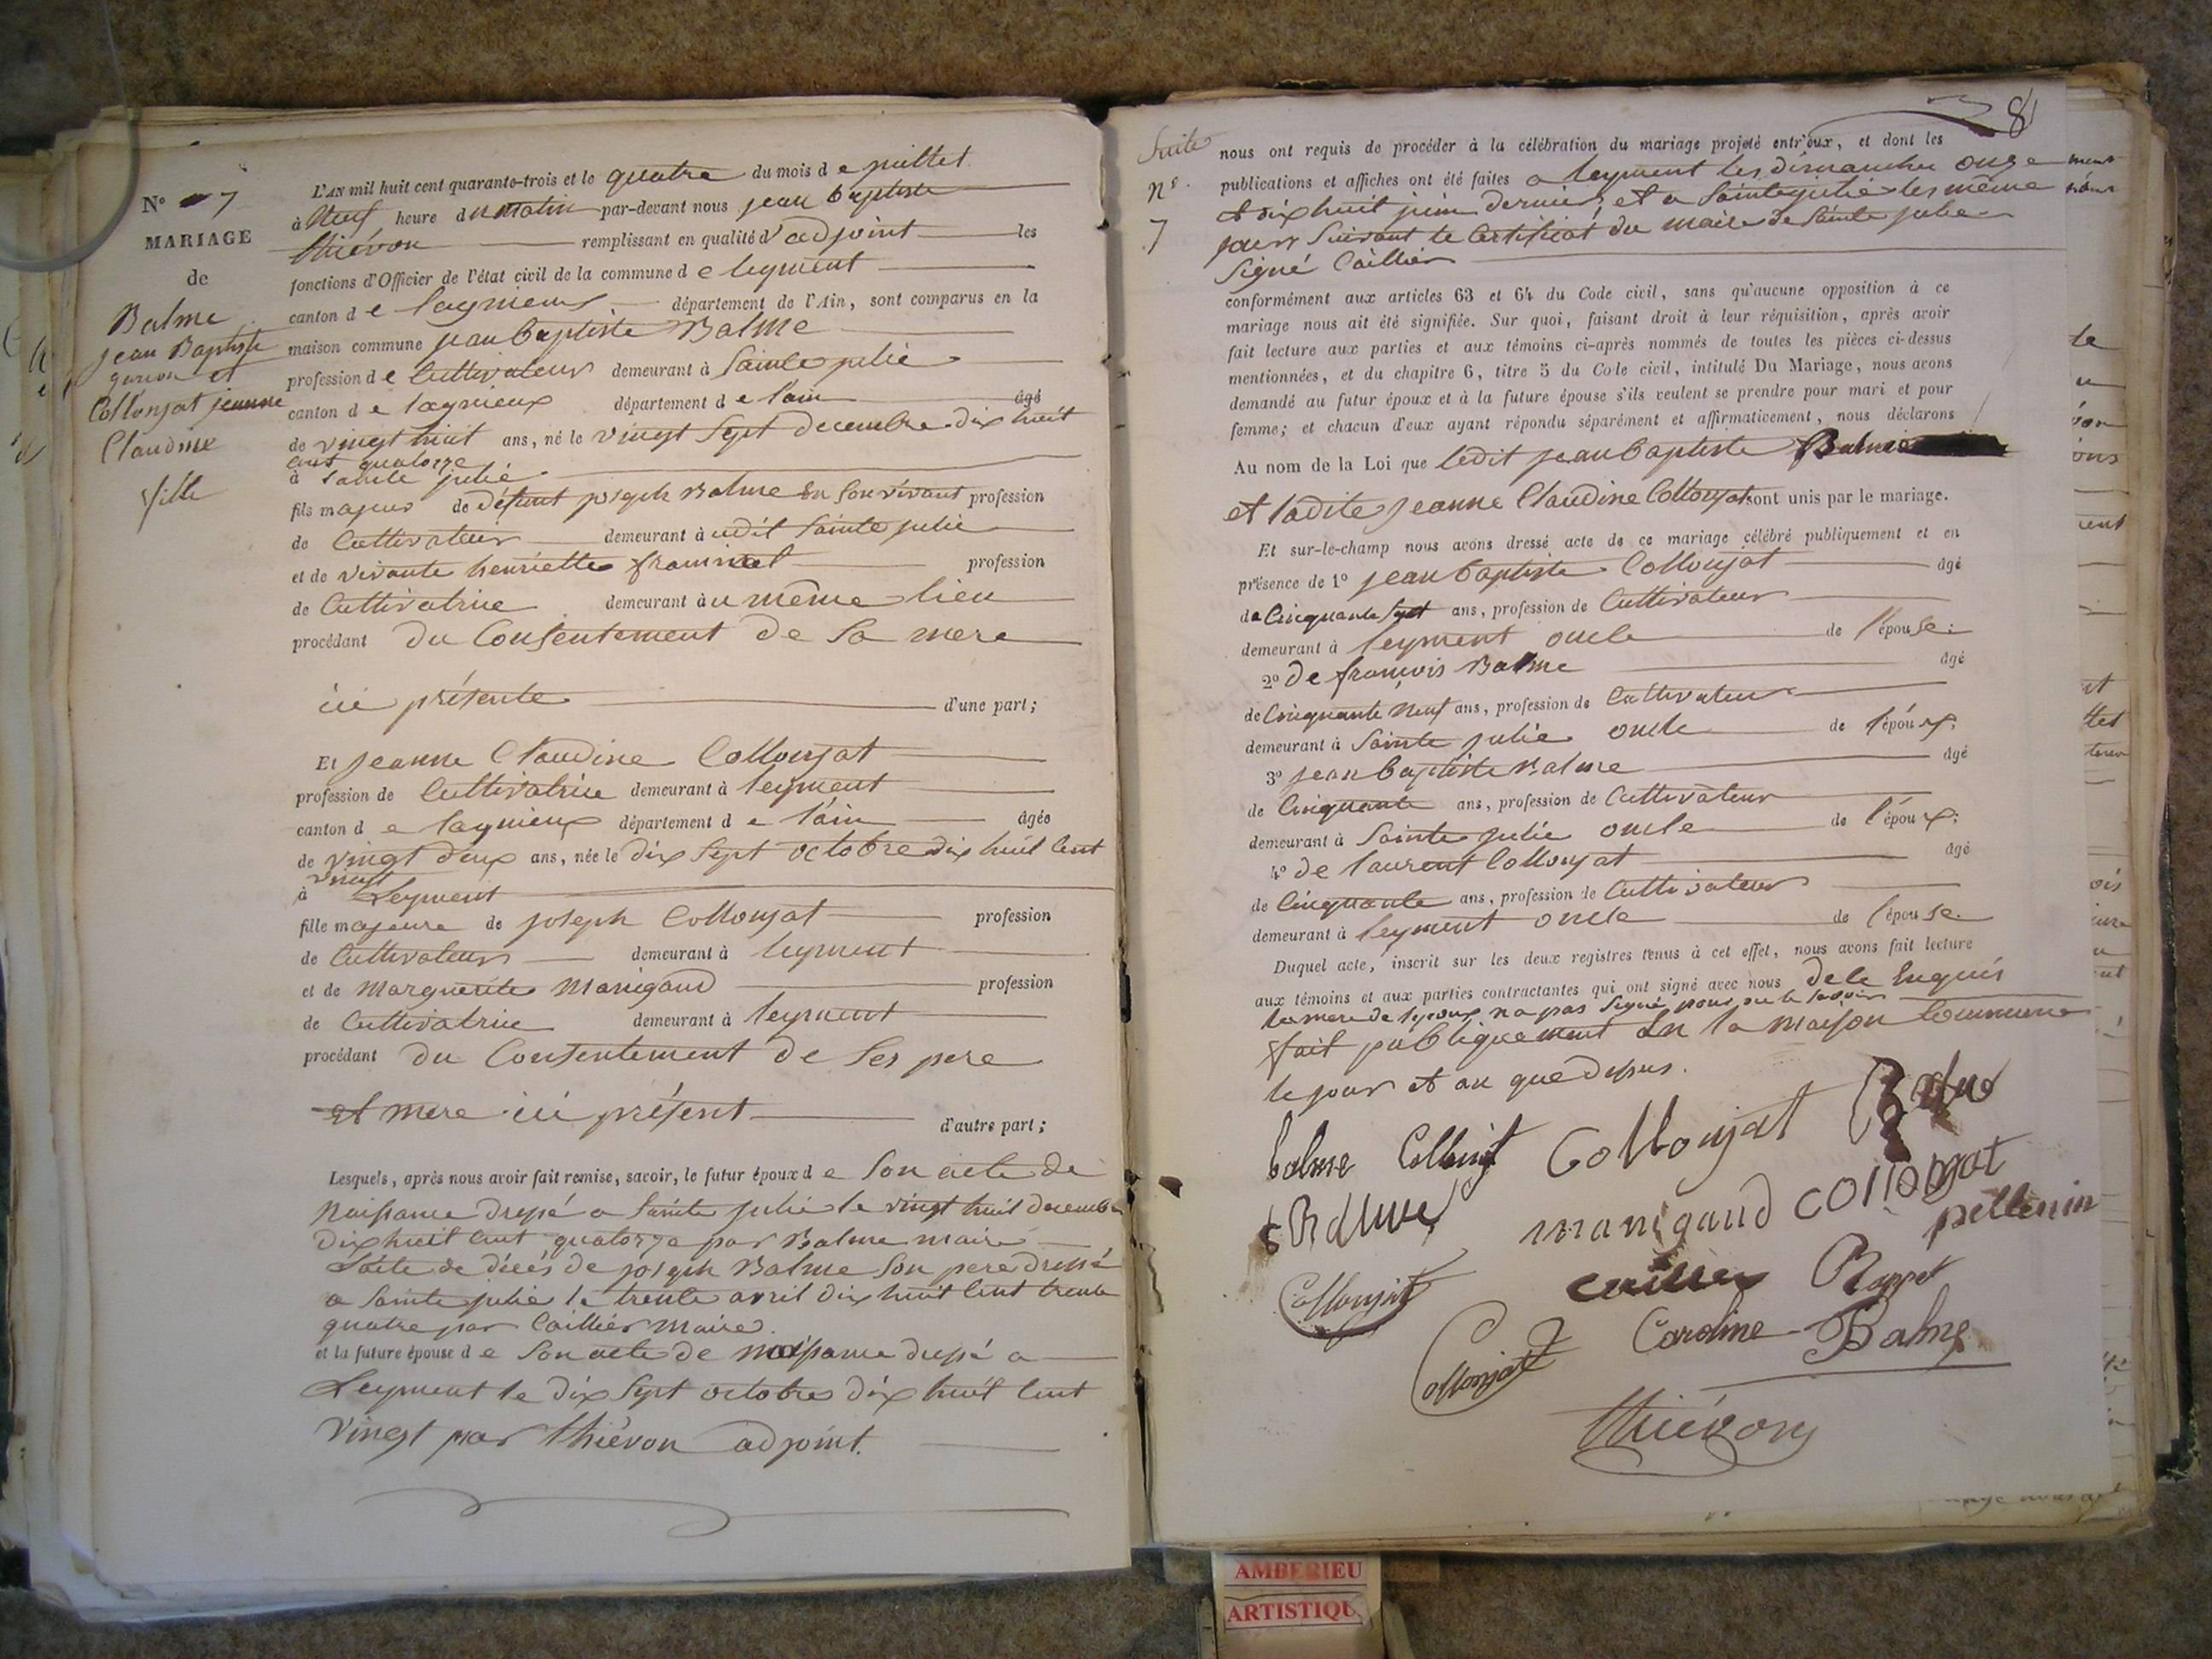 N° 7
MARIAGE
de
Balme
jean Baptiste
garcon et
Collonjat jeanne
Claudine
fille
L'AN mil huit cent quarante-trois et le quatre du mois d e juillet
à Neuf heure du matin par-devant nous jean baptiste
thiévon remplissant en qualité d'adjoint les
fonctions d'Officier de l'état civil de la commune d e leyment
canton d e lagnieux département de l'Ain, sont comparus en la
maison commune jean baptiste Balme
profession d e Cultivateur demeurant à Sainte julie
canton d e lagnieux département d e lain âgé
de vingt huit ans, né le vingt Sept decembre dix huit
cent quatorze
à Sainte julie
fils majeur de Défunt joseph Balme En Son vivant profession
de Cultivateur demeurant à udit Sainte julie
et de vivante henriette profession
de Cultivatrice demeurant àu même lieu
procédant du Consentement de Sa mere
ici présente d'une part;
Et jeanne Claudine Collonjat
profession de Cultivatrice demeurant à leyment
canton d e lagnieux département d e l'ain âgée
de vingt deux ans, née le dix Sept octobre dix huit Cent
vingt
à Leyment
fille majeure de joseph Collonjat profession
de Cultivateur demeurant à leyment
et de Marguerite Manigand profession
de Cultivatrice demeurant à leyment
procédant du Consentement de Ses pere
et mere ici présent d'autre part;
Lesquels, après nous avoir fait remise, savoir, le futur époux d e Son acte de
Naissance dressé a Sainte julie le vingt huit decembre
dix huit cent quatorze par Balme maire
L'acte de décés de joseph Balme Son pere dressé
a Sainte julie le trente avril dix huit Cent trente
quatre par Caillier Maire.
et la future épouse d e Son acte de naissance dressé a
Leyment le dix Sept octobre dix huit Cent
vingt par thiévon adjoint.
8
Suite nous ont requis de procéder à la célébration du mariage projeté entr'eux, et dont les
n°. publications et affiches ont été faites a leyment les dimanches onze
et dix huit juin dernier, et a Sainte julie les même
7 jours Suivant le Certificat du maire de Sainte julie
Signé Caillier
conformément aux articles 63 et 64 du Code civil, sans qu'aucune opposition à ce
mariage nous ait été signifiée. Sur quoi, faisant droit à leur réquisition, après avoir
fait lecture aux parties et aux témoins ci-après nommés de toutes les pièces ci-dessus
mentionnées, et du chapitre 6, titre 5 du Code civil, intitulé Du Mariage, nous avons
demandé au futur époux et à la future épouse s'ils veulent se prendre pour mari et pour
femme; et chacun d'eux ayant répondu séparément et affirmativement, nous déclarons
Au nom de la Loi que ledit jean baptiste Balme
et ladite jeanne Claudine Collonjat sont unis par le mariage.
Et sur-le-champ nous avons dressé acte de ce mariage célébré publiquement et en
présence de 1° jean baptiste Collonjat âgé
de Cinquante Sept ans, profession de Cultivateur
demeurant à leyment oncle de l'épouse.
2° de francois Balme âgé
de Cinquante Neuf ans, profession de Cultivateur
demeurant à Sainte julie oncle de l'époux;
3° jean baptiste Balme âgé
de Cinquante ans, profession de Cultivateur
demeurant à Sainte julie oncle de l'époux;
4° de laurent Collonjat âgé
de Cinquante ans, profession de Cultivateur
demeurant à leyment oncle de l'épouse.
Duquel acte, inscrit sur les deux registres tenus à cet effet, nous avons fait lecture
aux témoins et aux parties contractantes qui ont signé avec nous de ce Enquis
la mere de lepoux n'a pas Signé pour ne le Savoir
fait publiquement En la Maison Commune
le jour et an que dessus.
balme Collonjat Collonjat
Balme manigand collonjat
pellerin
Collonjat caillier
Collonjat Caroline Balme
thiévon
AMBERIEU
ARTISTIQU